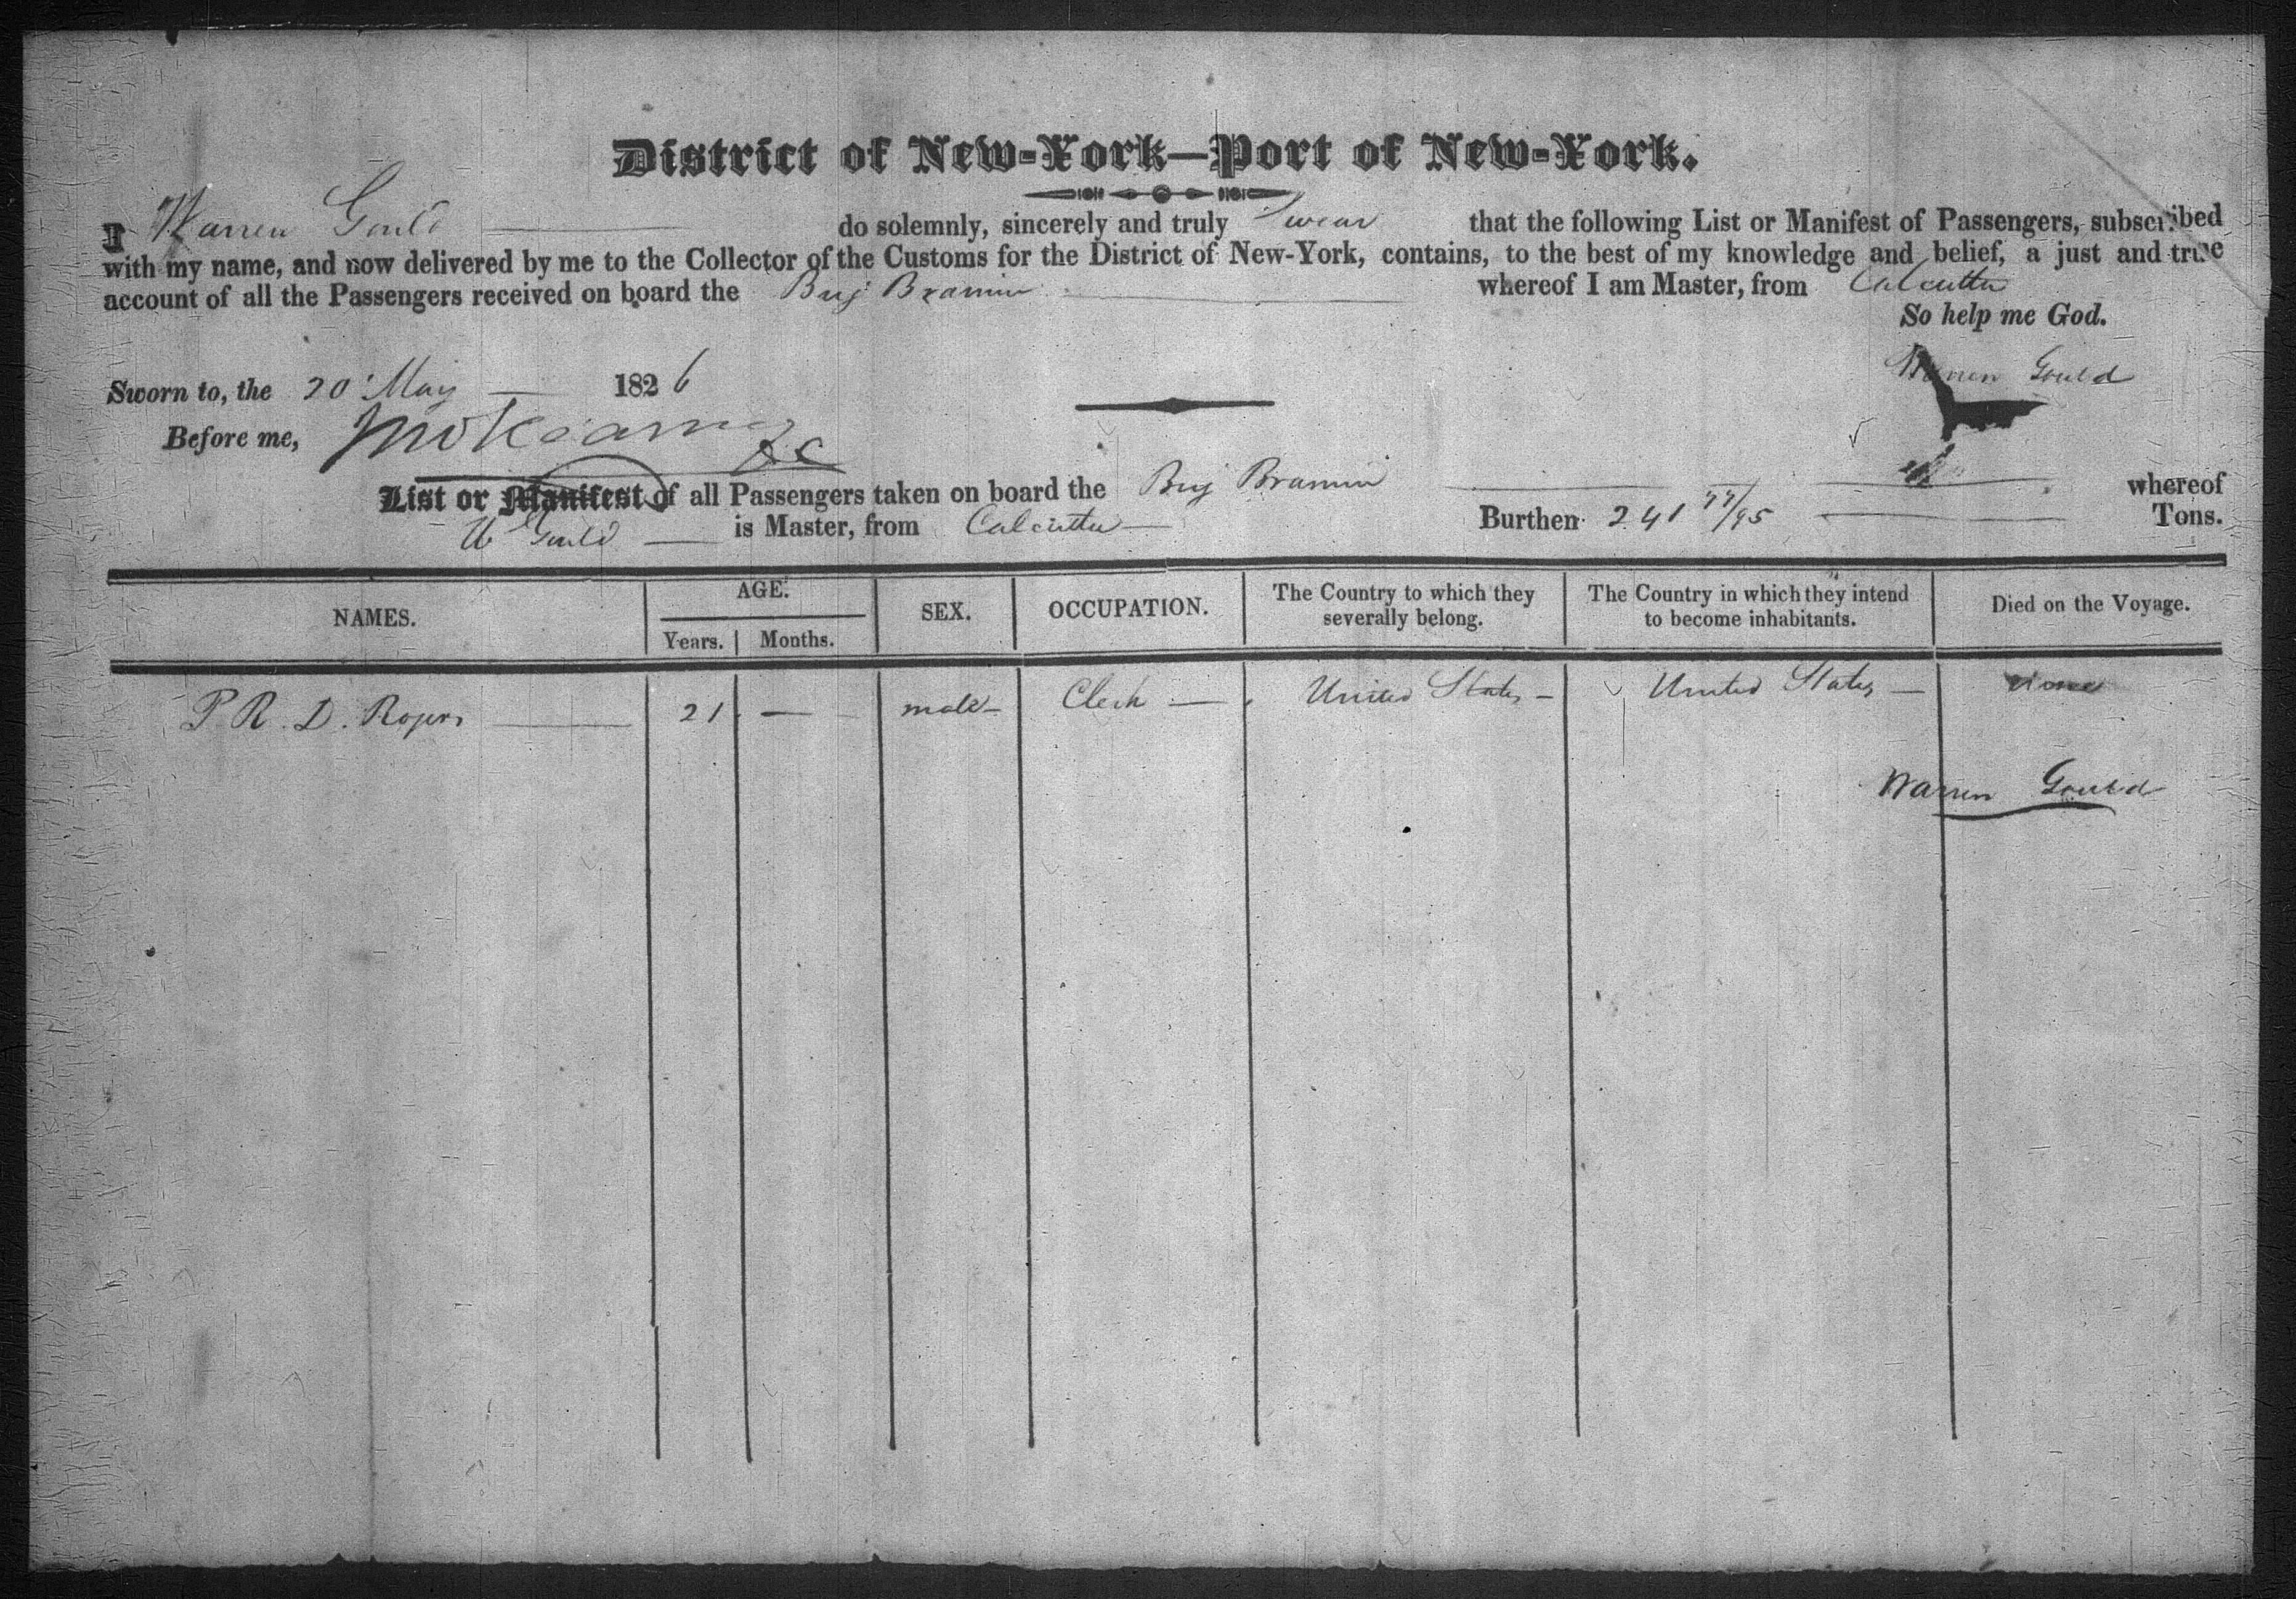 District of New-York—Port of New-York.
I Warren Gould do solemnly, sincerely and truly Swear that the following List or Manifest of Passengers, subscribed
with my name, and now delivered by me to the Collector of the Customs for the District of New-York, contains, to the best of my knowledge and belief, a just and true
account of all the Passengers received on board the Brig Bramin whereof I am Master, from Calcutta
So help me God.
Warren Gould
Sworn to, the 20 May 1826
Before me,
List or Manifest of all Passengers taken on board the Brig Bramin whereof
W Gould is Master, from Calcutta Burthen 241 77/95 Tons.
NAMES. AGE. SEX. OCCUPATION. The Country to which they severally belong. The Country in which they intend to become inhabitants. Died on the Voyage.
Years. Months.
P. R. D. Rogers 21 — male Clerk United States United States None
Warren Gould